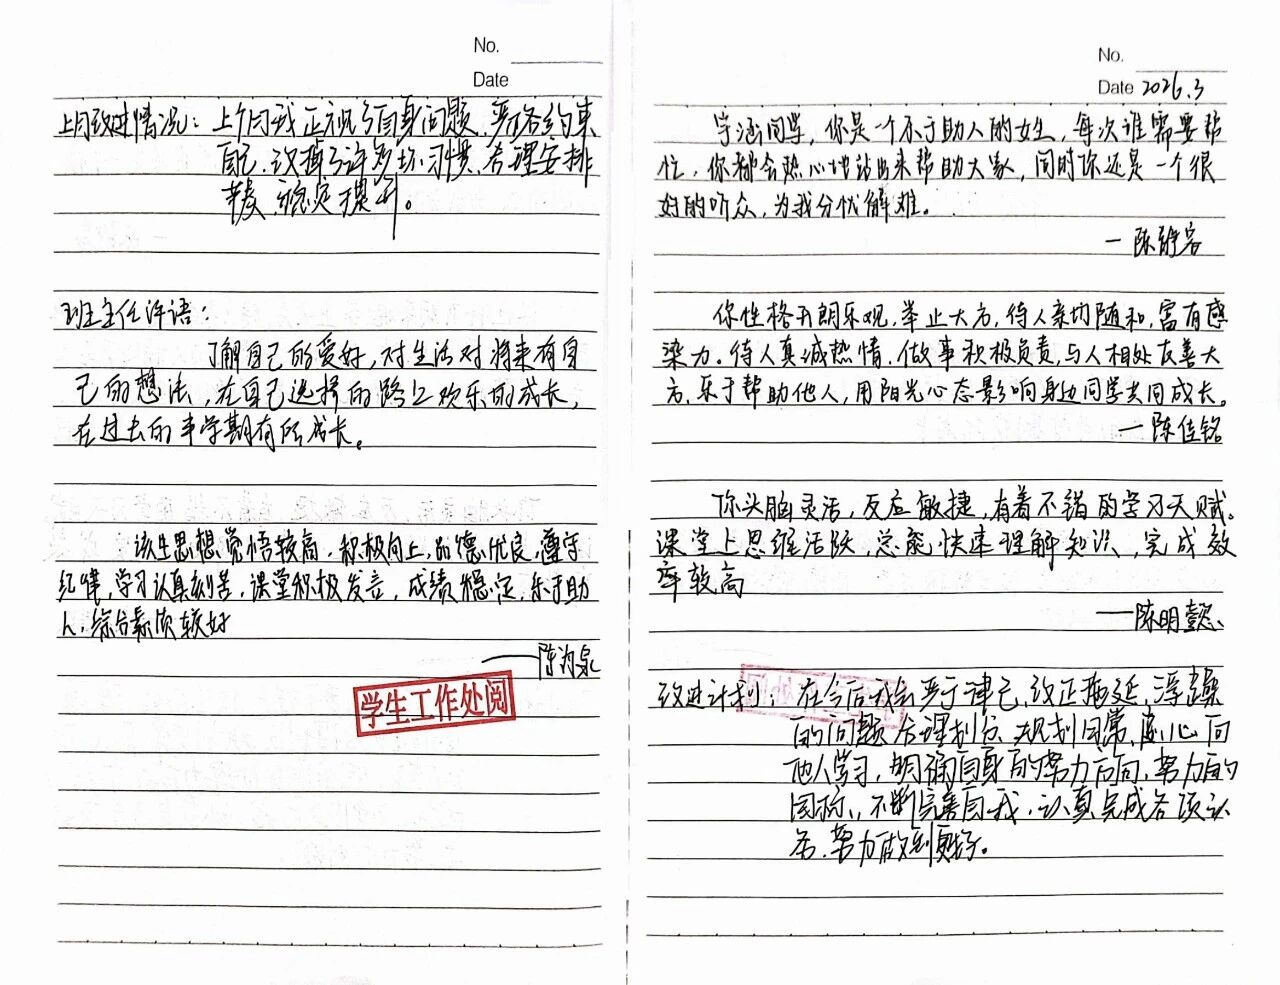 No.
Date
上月改进情况：上个月我正视了自身问题，严格约束
自己，改掉了许多坏习惯，合理安排
稳定
班主任评语：
了解自己的爱好，对生活对将来有自
己的想法，在自己选择的路上欢乐的成长，
在过去的半学期有所成长。
该生思想觉悟较高，积极向上，品德优良，遵守
纪律，学习认真刻苦，课堂积极发言，成绩稳定，乐于助
人，综合素质较好
——陈沟泉
学生工作处阅
No.
Date 2026.3
宇涵同学，你是一个乐于助人的女生，每次谁需要帮
忙，你都会热心地站出来帮助大家，同时你还是一个很
好的听众，为我分忧解难。
—陈雅容
你性格开朗乐观，举止大方，待人亲切随和，富有感
染力。待人真诚热情，做事积极负责，与人相处友善大
方，乐于帮助他人，用阳光心态影响身边同学共同成长。
—陈佳铭
你头脑灵活，反应敏捷，有着不错的学习天赋。
课堂上思维活跃，总能快速理解知识，完成效
率较高
——陈明懿
改进计划：在今后我会严于律己，改正拖延，浮躁
的问题，合理划分，规划日常，虚心向
他人学习，明确自身的努力方向，努力的
目标，不断完善自我，认真完成各项任
务，努力做到更好。